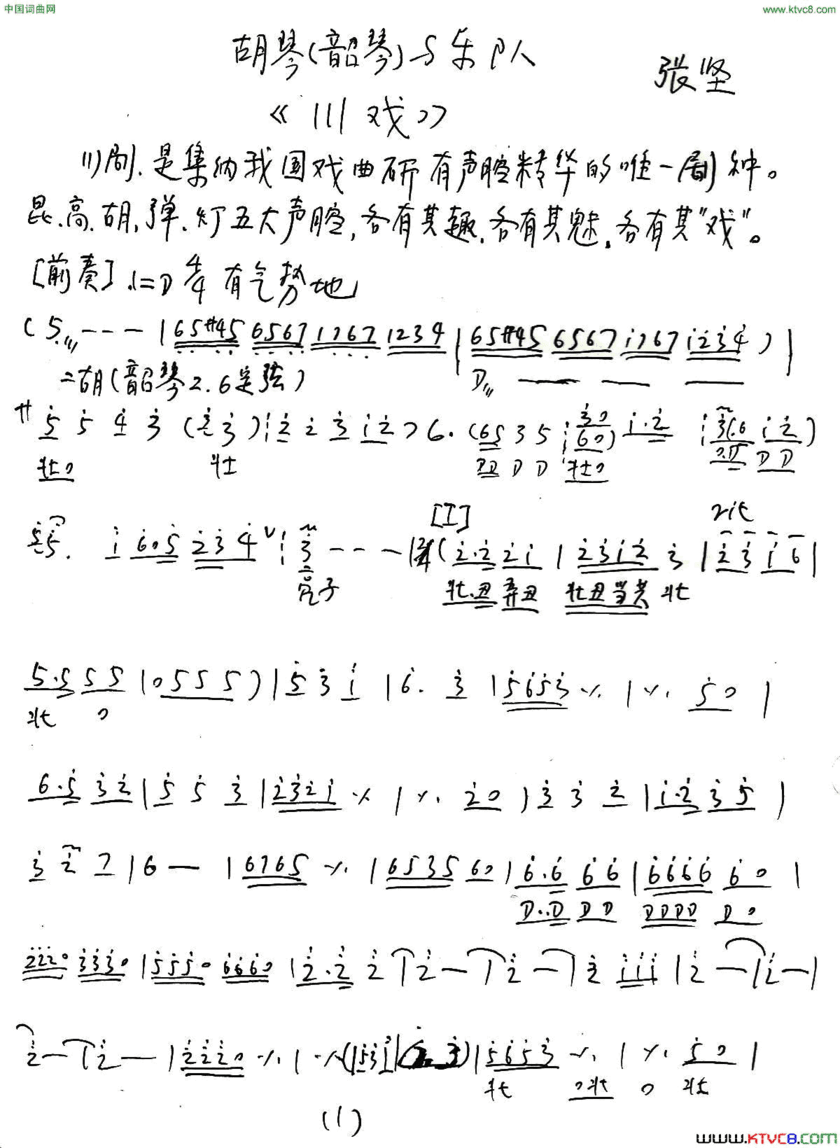 中国词曲网
www.ktvc8.com
胡琴(韶琴)与乐队
张坚
《川戏》
川剧.是集纳我国戏曲所有声腔精华的唯一剧种。
昆、高、胡、弹、灯五大声腔,各有其趣,各有其魅,各有其"戏"。
[前奏] 1=D 4/4 有气势地
(5 - - - | 65#45 6567 1767 1234 | 65#45 6567 1767 1234 ) |
二胡(韶琴2.6定弦)
5 5 4 3
壮0
壮
1 6·5 2 3 4
3 - - - |
亮子
[I]
rit
(2·2 21 | 2312 3 | 2 3 1 6 |
壮.丑 弄丑 壮丑当共 壮
5·5 55 | 0555) | 5 3 1 | 6· 3 | 5653 ٪ | ٪ 50 |
壮 0
6·5 32 | 5 5 3 | 2321 ٪ | ٪ 20 | 3 3 2 | 1·2 35 |
3 2 7 | 6 — | 6765 ٪ | 6535 60 | 6·6 66 | 6666 60 |
D..D DD DDDD D0
2220 3330 | 5550 6660 | 2·2 2 | 2 — | 2 — | 2 111 | 2 — | 2 — |
2 — | 2 — | 2220 ٪ | ٪
| 5653 ٪ | ٪ 50 |
壮 0壮 0 壮
(1)
www.KTVC8.com